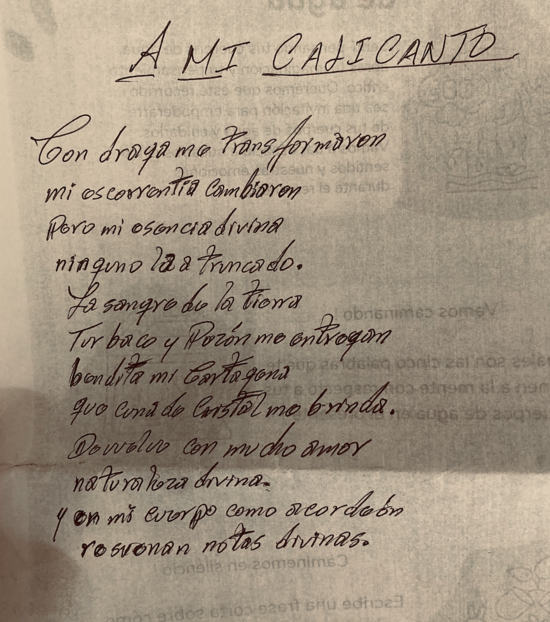 A MI CALICANTO
Con draga me transformaron
mi escorrentía cambiaron
Pero mi esencia divina
ninguno la a truncado.
La sangre de la tierra
Turbaco y Pozón me entregan
bendita mi Cartagena
que cuna de Cristal me brinda.
Devuelve con mucho amor
naturaleza divina.
y en mi cuerpo como acordeón
resuenan notas divinas.